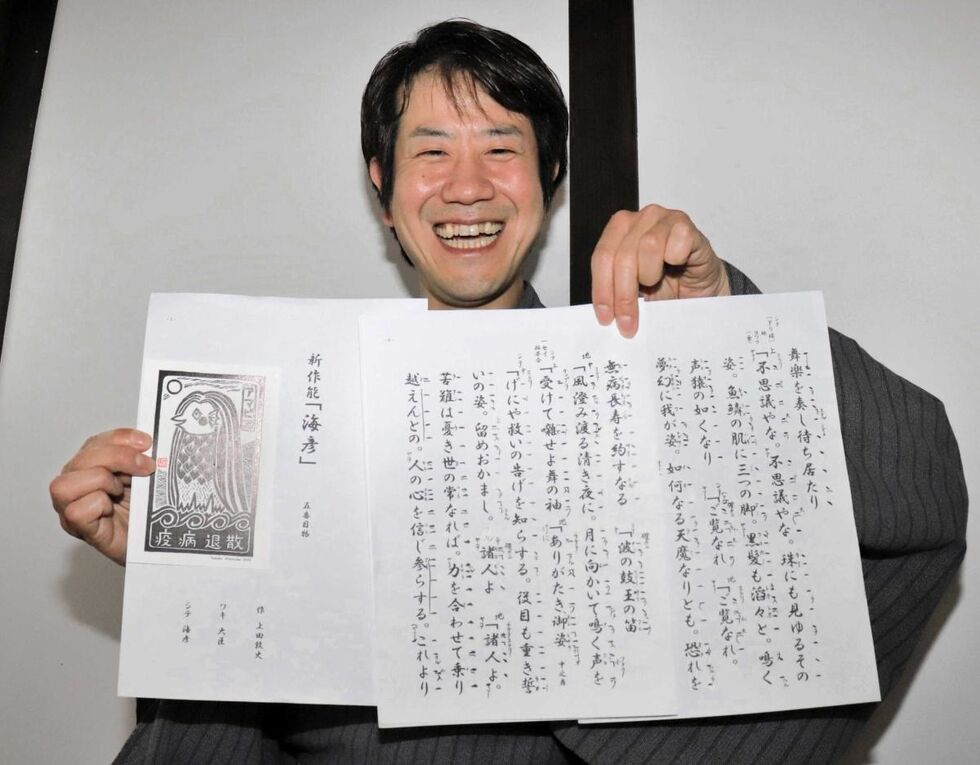 舞楽を奏し待ち居たり
「不思議やな。不思議やな。珠にも見ゆるその
姿。魚鱗の肌に三つの脚。黒髪も滔々と。鳴く
声猿の如くなり 「ご覧なれ 「ご覧なれ。
夢幻に我が姿。如何なる天魔なりとも。恐れを
無病長寿を約すなる 「波の鼓玉の笛
「風澄み渡る清き夜に。月に向かいて鳴く声を
「受けて囃せよ舞の袖 「ありがたき御姿
「げにや救いの告げを知らする。役目も重き誓
いの姿。留めおかまし。 「諸人よ 「諸人よ。
苦難は憂き世の常なれば。力を合わせて乗り
越えんとの。人の心を信じ参らする。これより
新作能「海彦」
五番目物
作 上田敦史
ワキ 大臣
シテ 海彦
疫病退散